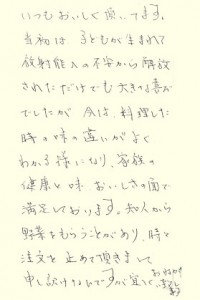 いつもおいしく頂いてます。
当初は子どもが生まれて
放射能への不安から解放
されただけでも大きな喜び
でしたが 今は、料理した
時の味の違いがよく
わかる様になり、家族の
健康と味 おいしさの面で
満足しております。知人から
野菜をもらうことがあり、時々
注文を止めて頂きまして
申し訳けないですが宜しく
お願い
致します